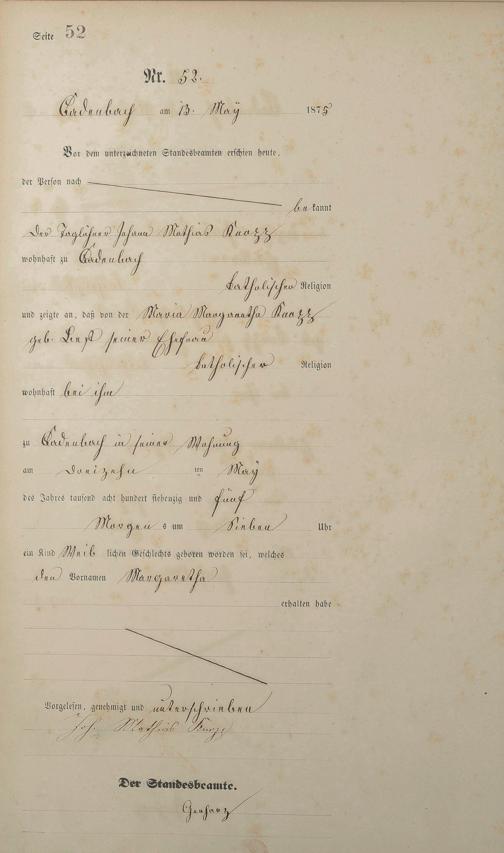 Seite 52
Nr. 52.
Cadenbach am 13. Maÿ 1875
Vor dem unterzeichneten Standesbeamten erschien heute,
der Person nach
be kannt
Der Taglöhner Johann Mathias
wohnhaft zu Cadenbach
katholischer Religion
und zeigte an, daß von der Maria Margaretha
geb. seiner Ehefrau
katholischer Religion
wohnhaft bei ihm
zu Cadenbach in seiner Wohnung
am dreizehn ten Maÿ
des Jahres tausend acht hundert siebenzig und fünf
Morgen s um Sieben Uhr
ein Kind Weib lichen Geschlechts geboren worden sei, welches
den Vornamen Margaretha
erhalten habe
Vorgelesen, genehmigt und unterschrieben
Joh. Mathias
Der Standesbeamte.
Gerharz